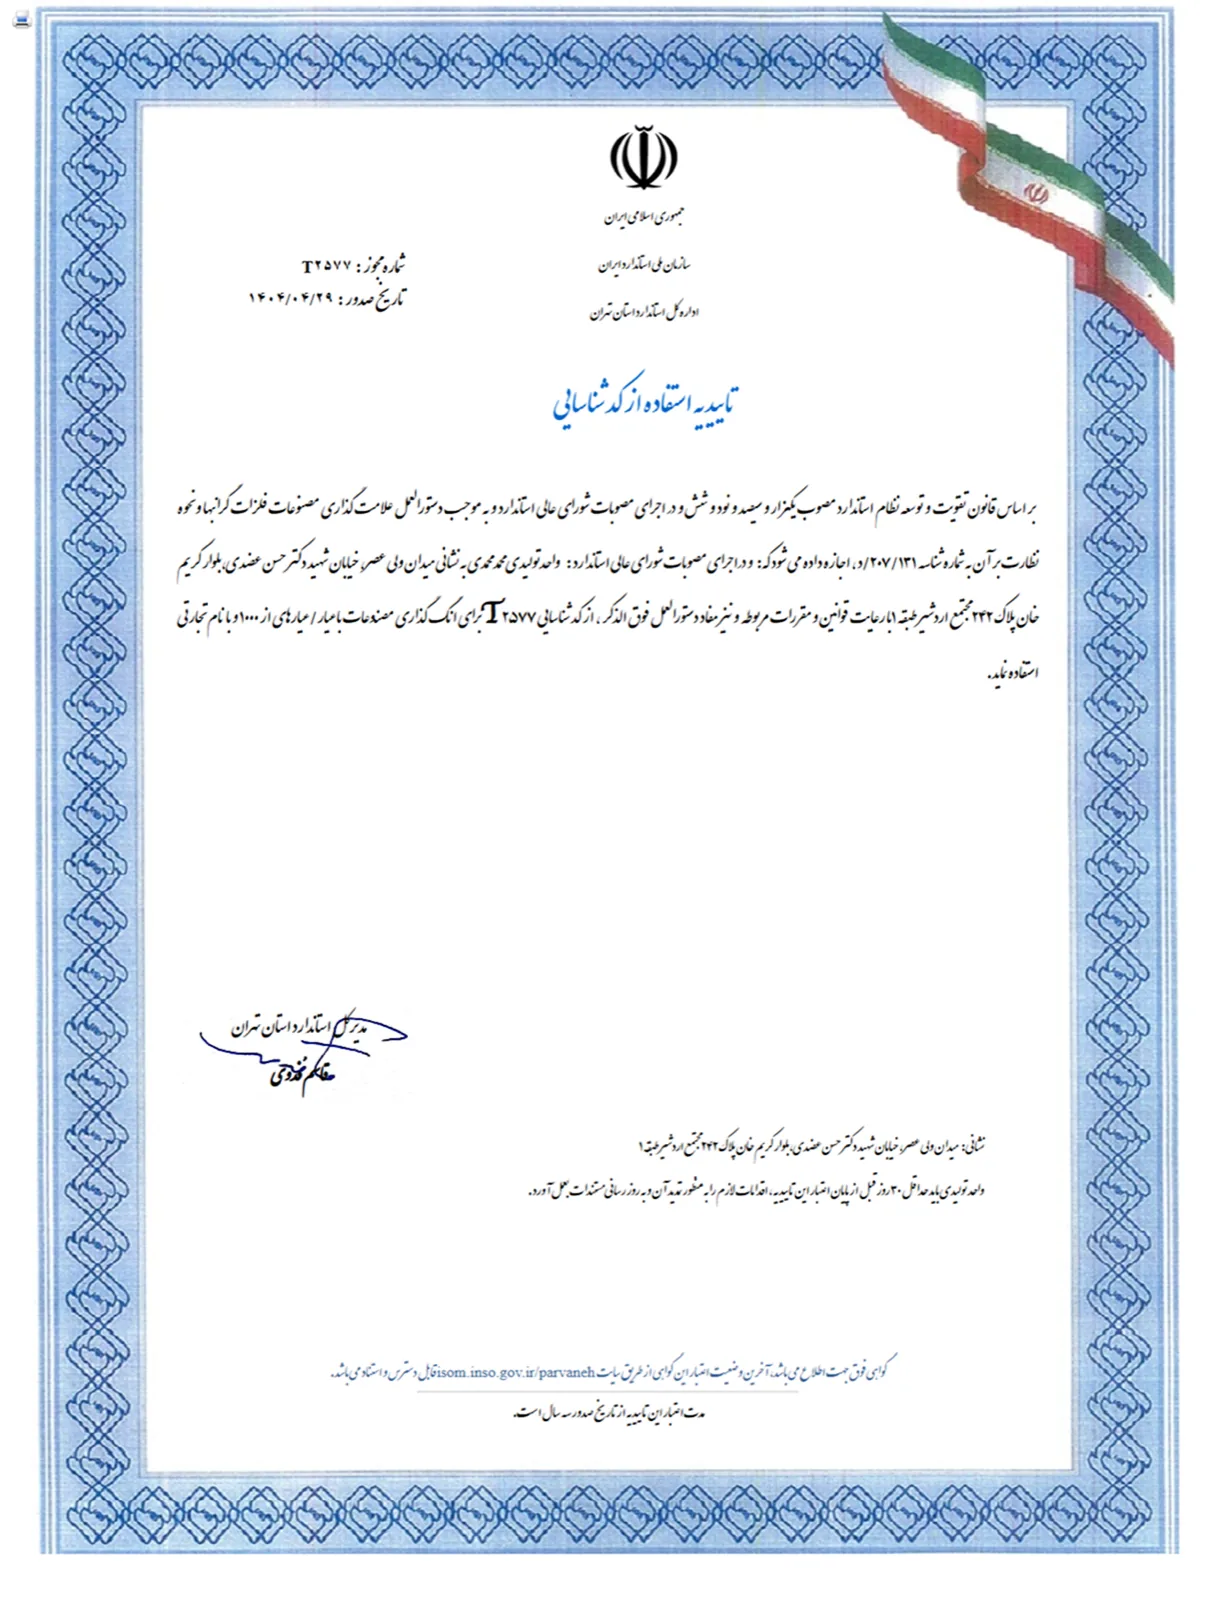 جمهوری اسلامی ایران
سازمان ملی استاندارد ایران
اداره کل استاندارد استان تهران
شماره مجوز : T۲۵۷۷
تاریخ صدور : ۱۴۰۴/۰۴/۲۹
تاییدیه استفاده از کد شناسایی
بر اساس قانون تقویت و توسعه نظام استاندارد مصوب یکهزار و سیصد و نود و شش و در اجرای مصوبات شورای عالی استاندارد و به موجب دستورالعمل علامت گذاری مصنوعات فلزات گرانبها و نحوه
نظارت بر آن به شماره شناسه ۲۰۷/۱۳۱/د، اجازه داده می شود که: و در اجرای مصوبات شورای عالی استاندارد: واحد تولیدی محمد محمدی به نشانی میدان ولی عصر، خیابان شهید دکتر حسن عضدی، بلوار کریم
خان پلاک ۲۴۲ مجتمع اردشیر طبقه ۱ با رعایت قوانین و مقررات مربوطه و نیز مفاد دستورالعمل فوق الذکر ، از کد شناسایی T۲۵۷۷ برای انگ گذاری مصنوعات با عیار / عیارهای از ۱۰۰۰ و با نام تجارتی
استفاده نماید.
مدیر کل استاندارد استان تهران
نشانی: میدان ولی عصر، خیابان شهید دکتر حسن عضدی، بلوار کریم خان پلاک ۲۴۲ مجتمع اردشیر طبقه ۱
واحد تولیدی باید حداقل ۳۰ روز قبل از پایان اعتبار این تاییدیه، اقدامات لازم را به منظور تمدید آن و به روز رسانی مستندات بعمل آورد.
گواهی فوق جهت اطلاع می باشد، آخرین وضعیت اعتبار این گواهی از طریق سایت isom.inso.gov.ir/parvaneh قابل دسترس و استناد می باشد.
مدت اعتبار این تاییدیه از تاریخ صدور سه سال است.